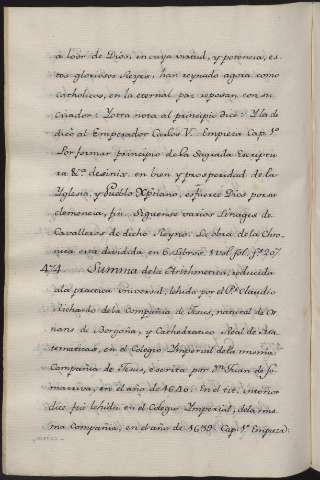 a loor de Dios, in cuya virtud, y potencia, es-
tos gloriosos Reyes, han reynado agora como
Catholicos, en la eternal paz reposan con su
Criador: Y otra nota al principio dice: Y la de
dicó al Emperador Carlos V. Empieza Cap. 1º
Por formar principio de la Sagrada Escriptu
ra &ª desinit. en bien y prosperidad de la
Yglesia, y Pueblo Xptiano, esfuerce Dios por su
clemencia, fin. Siguense varios Linages de
Cavalleros de dicho Reyno. La obra de la Chro-
nica está dividida en 6. Libros. 1 vol. fol. fs 207
474 Summa de la Arithmetica, reducida
a la practica Universal, lehida por el P. Claudio
Richardo de la Compañia de Jesus, natural de Or
nans de Borgoña, y Cathedratico Real de Ma-
tematicas, en el Colegio Ymperial de la misma
Compañia de Jesus, escrita por Dn. Juan de So
marriva, en el año de 1640. En el tit. interior
dice fue lehida en el Colegio Ymperial, de la mis
ma Compañia, en el año de 1639. Cap. 1º Empieza: